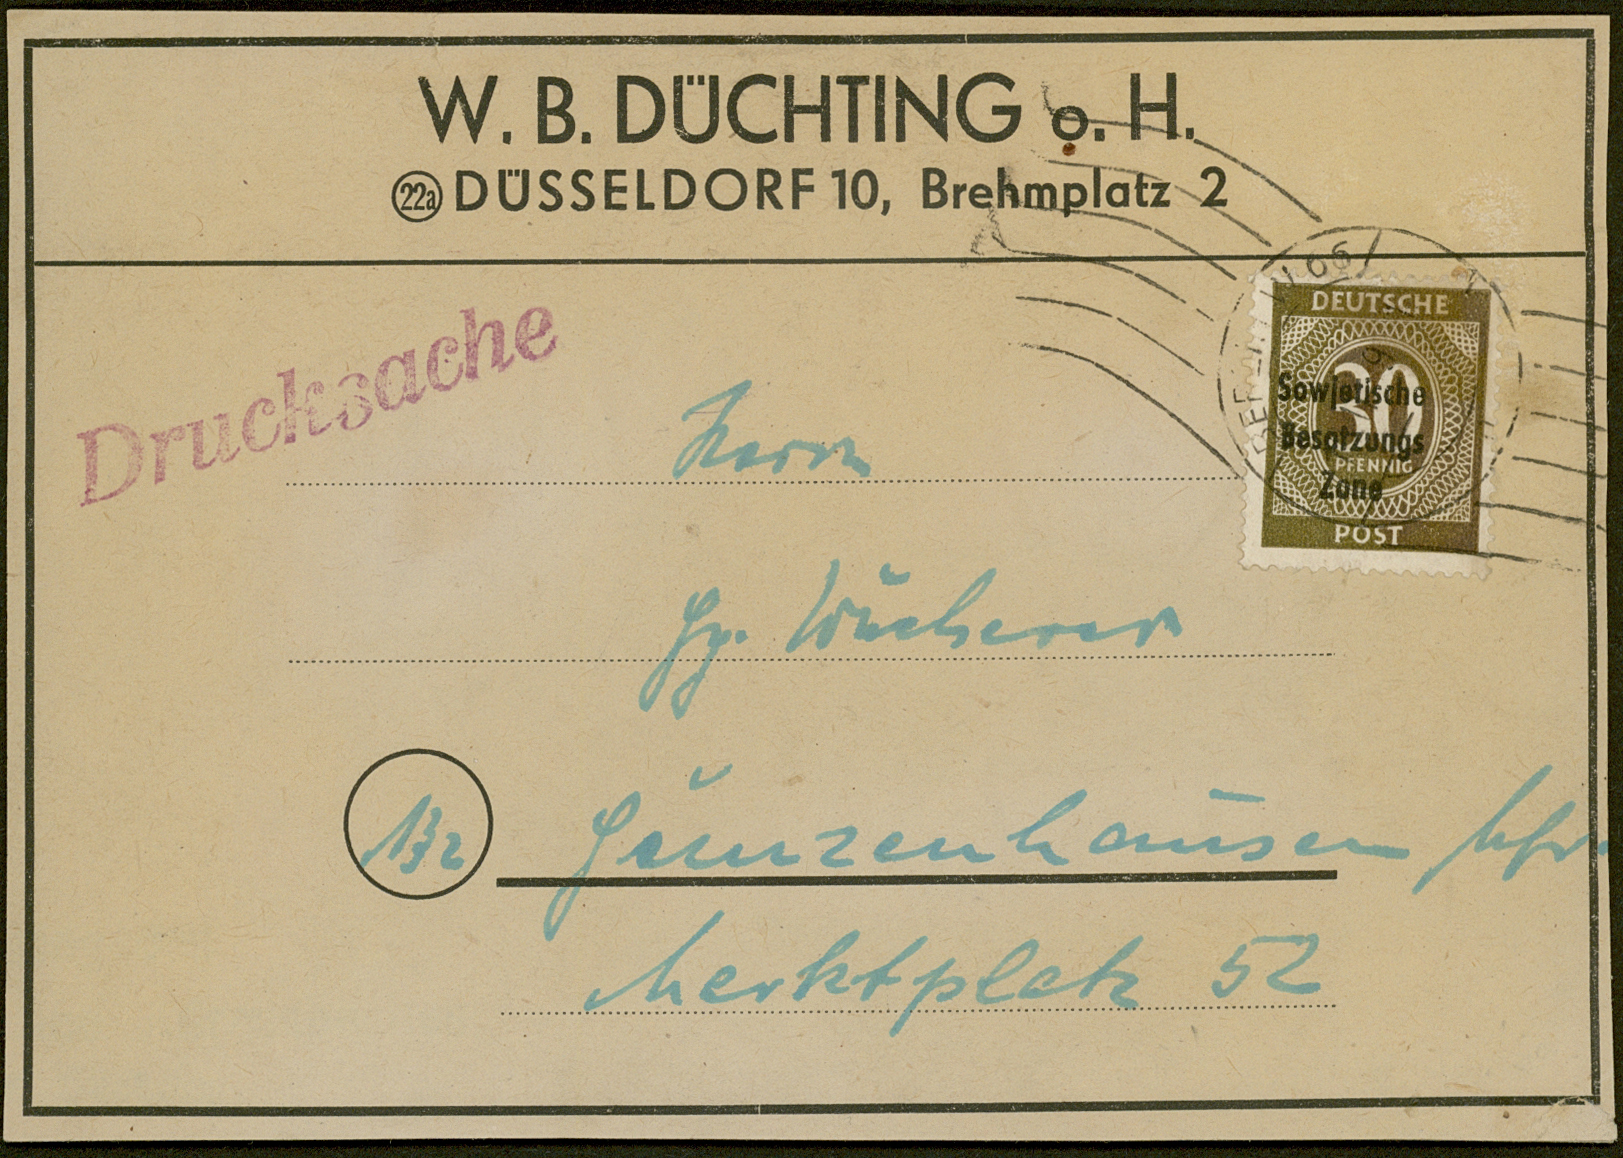 W. B. DÜCHTING o. H.
22a DÜSSELDORF 10, Brehmplatz 2
DEUTSCHE
30
Sowjetische
Besatzungs
PFENNIG
Zone
POST
Drucksache
Herrn
Gg. Wücherer
13a Gunzenhausen
Marktplatz 52